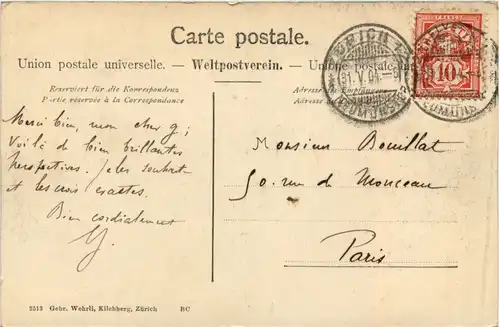 Carte postale.
Union postale universelle. — Weltpostverein. — Unione postale
Reserviert für die Korrespondenz
Partie réservée à la Correspondance
Adresse
Adresse
FRANCO
10
Merci bien, mon cher G;
Voilà de bien brillantes
perspectives. Je les souhait
et les crois exactes.
Bien cordialement
Monsieur Bouillat
50. rue de Monceau
Paris
2513 Gebr. Wehrli, Kilchberg, Zürich BC